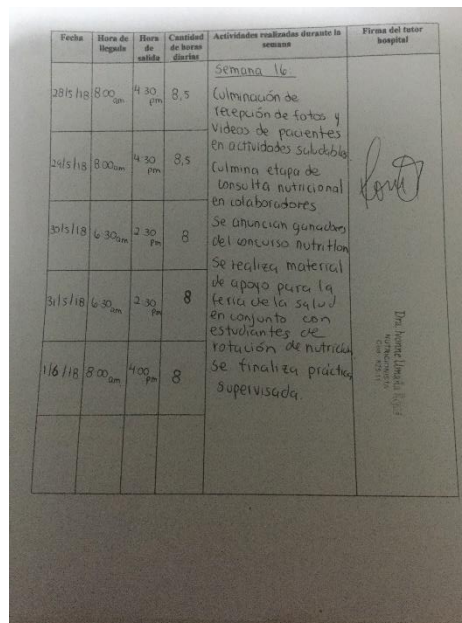 Fecha
Hora de llegada
Hora de salida
Cantidad de horas diarias
Actividades realizadas durante la semana
Firma del tutor hospital
Semana 16
28/5/18 8:00 am 4:30 pm 8,5
Culminación de
recepción de fotos y
videos de pacientes
en actividades saludables
24/5/18 8:00am 4:30 pm 8,5
Culmina etapa de
consulta nutricional
en colaboradores
30/5/18 6:30am 2:30 pm 8
Se anuncian ganadores
del concurso nutritlon
Se realiza material
31/5/18 6:30 am 2:30 pm 8
de apoyo para la
feria de la salud
en conjunto con
estudiantes de
rotación de nutrición
1/6/18 8:00 am 4:00 pm 8
Se finaliza práctica
supervisada.
Dra. Ivonne
NUTRICIONISTA